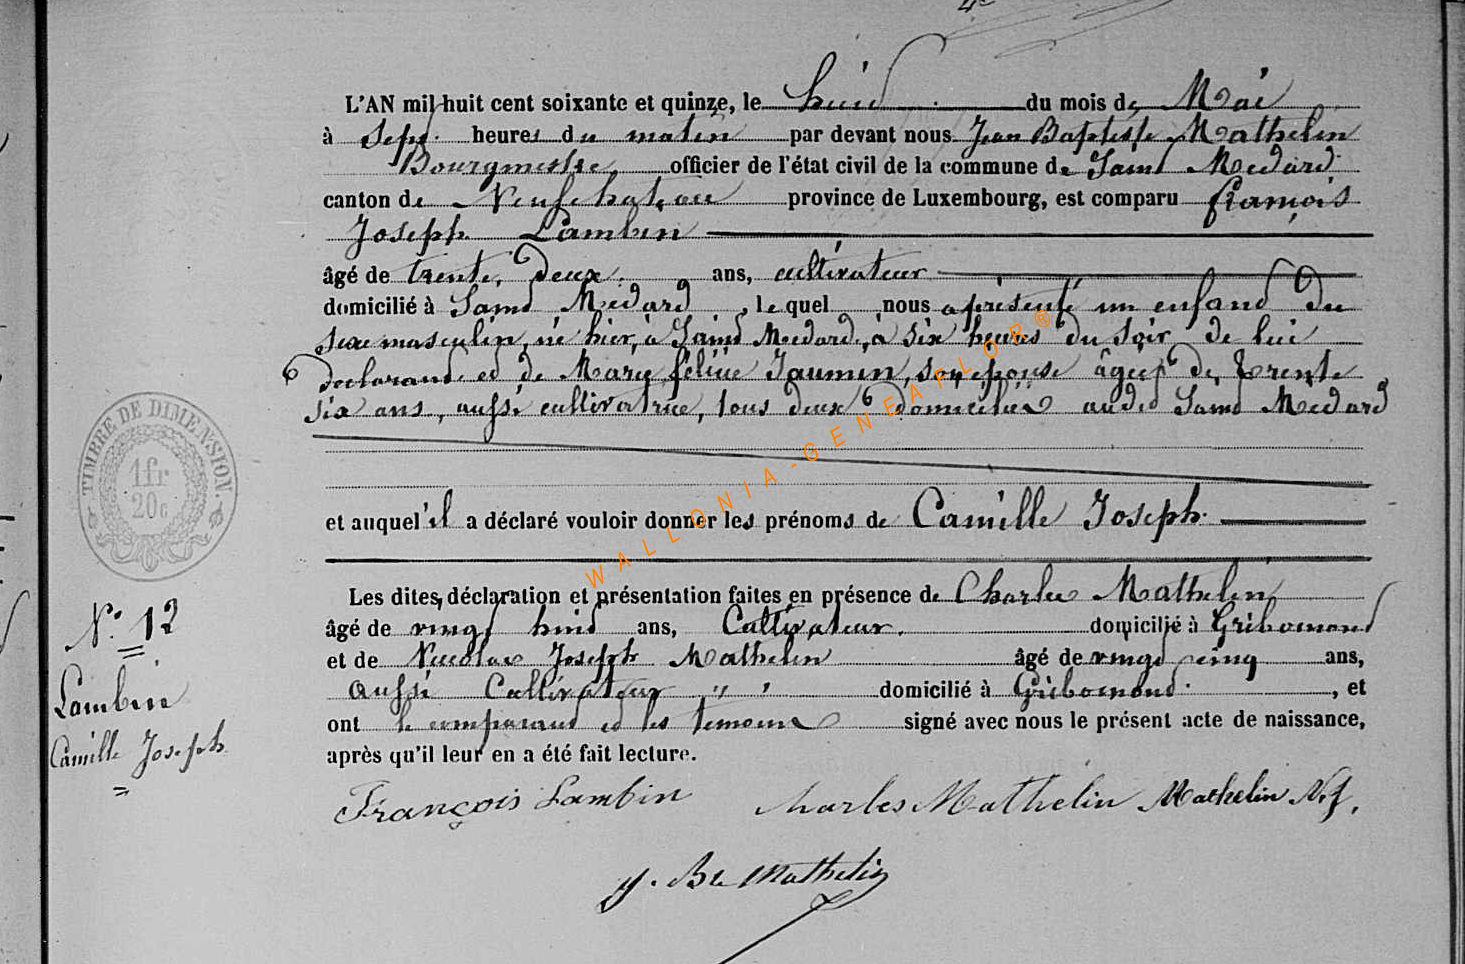 L'AN mil huit cent soixante et quinze, le huit du mois de Mai
à Sept heures du matin par devant nous Jean Baptiste Mathelin
Bourgmestre officier de l'état civil de la commune de Saint Medard
canton de Neufchateau province de Luxembourg, est comparu françois
Joseph Lambin
âgé de trente deux ans, cultivateur
domicilié à Saint Medard, lequel nous a présenté un enfant du
sexe masculin, né hier, à Saint Medard, à six heures du soir de lui
déclarant et de Marie félicie Jaumin, son épouse âgée de trente
six ans, aussi cultivatrice, tous deux domiciliés audit Saint Medard
et auquel il a déclaré vouloir donner les prénoms de Camille Joseph
Les dites déclaration et présentation faites en présence de Charles Mathelin
âgé de vingt huit ans, Cultivateur domicilié à Gribomont
et de Nicolas Joseph Mathelin âgé de vingt cinq ans,
aussi Cultivateur " " domicilié à Gribomont, et
ont le comparant et les temoins signé avec nous le présent acte de naissance,
après qu'il leur en a été fait lecture.
François Lambin Charles Mathelin Mathelin N.J.
J. Bte Mathelin
TIMBRE DE DIMENSION.
1fr
20c
N° 12
Lambin
Camille Joseph
WALLONIA-GENEAFLOR®